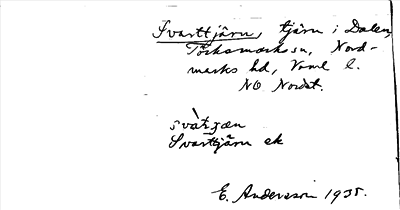 Svarttjärn, tjärn i Dalen,
Töcksmarks sn, Nord-
marks hd, Vrml l.
NO Nordst.
svàtjæn
Svarttjärn ek
E. Andersson 1935.